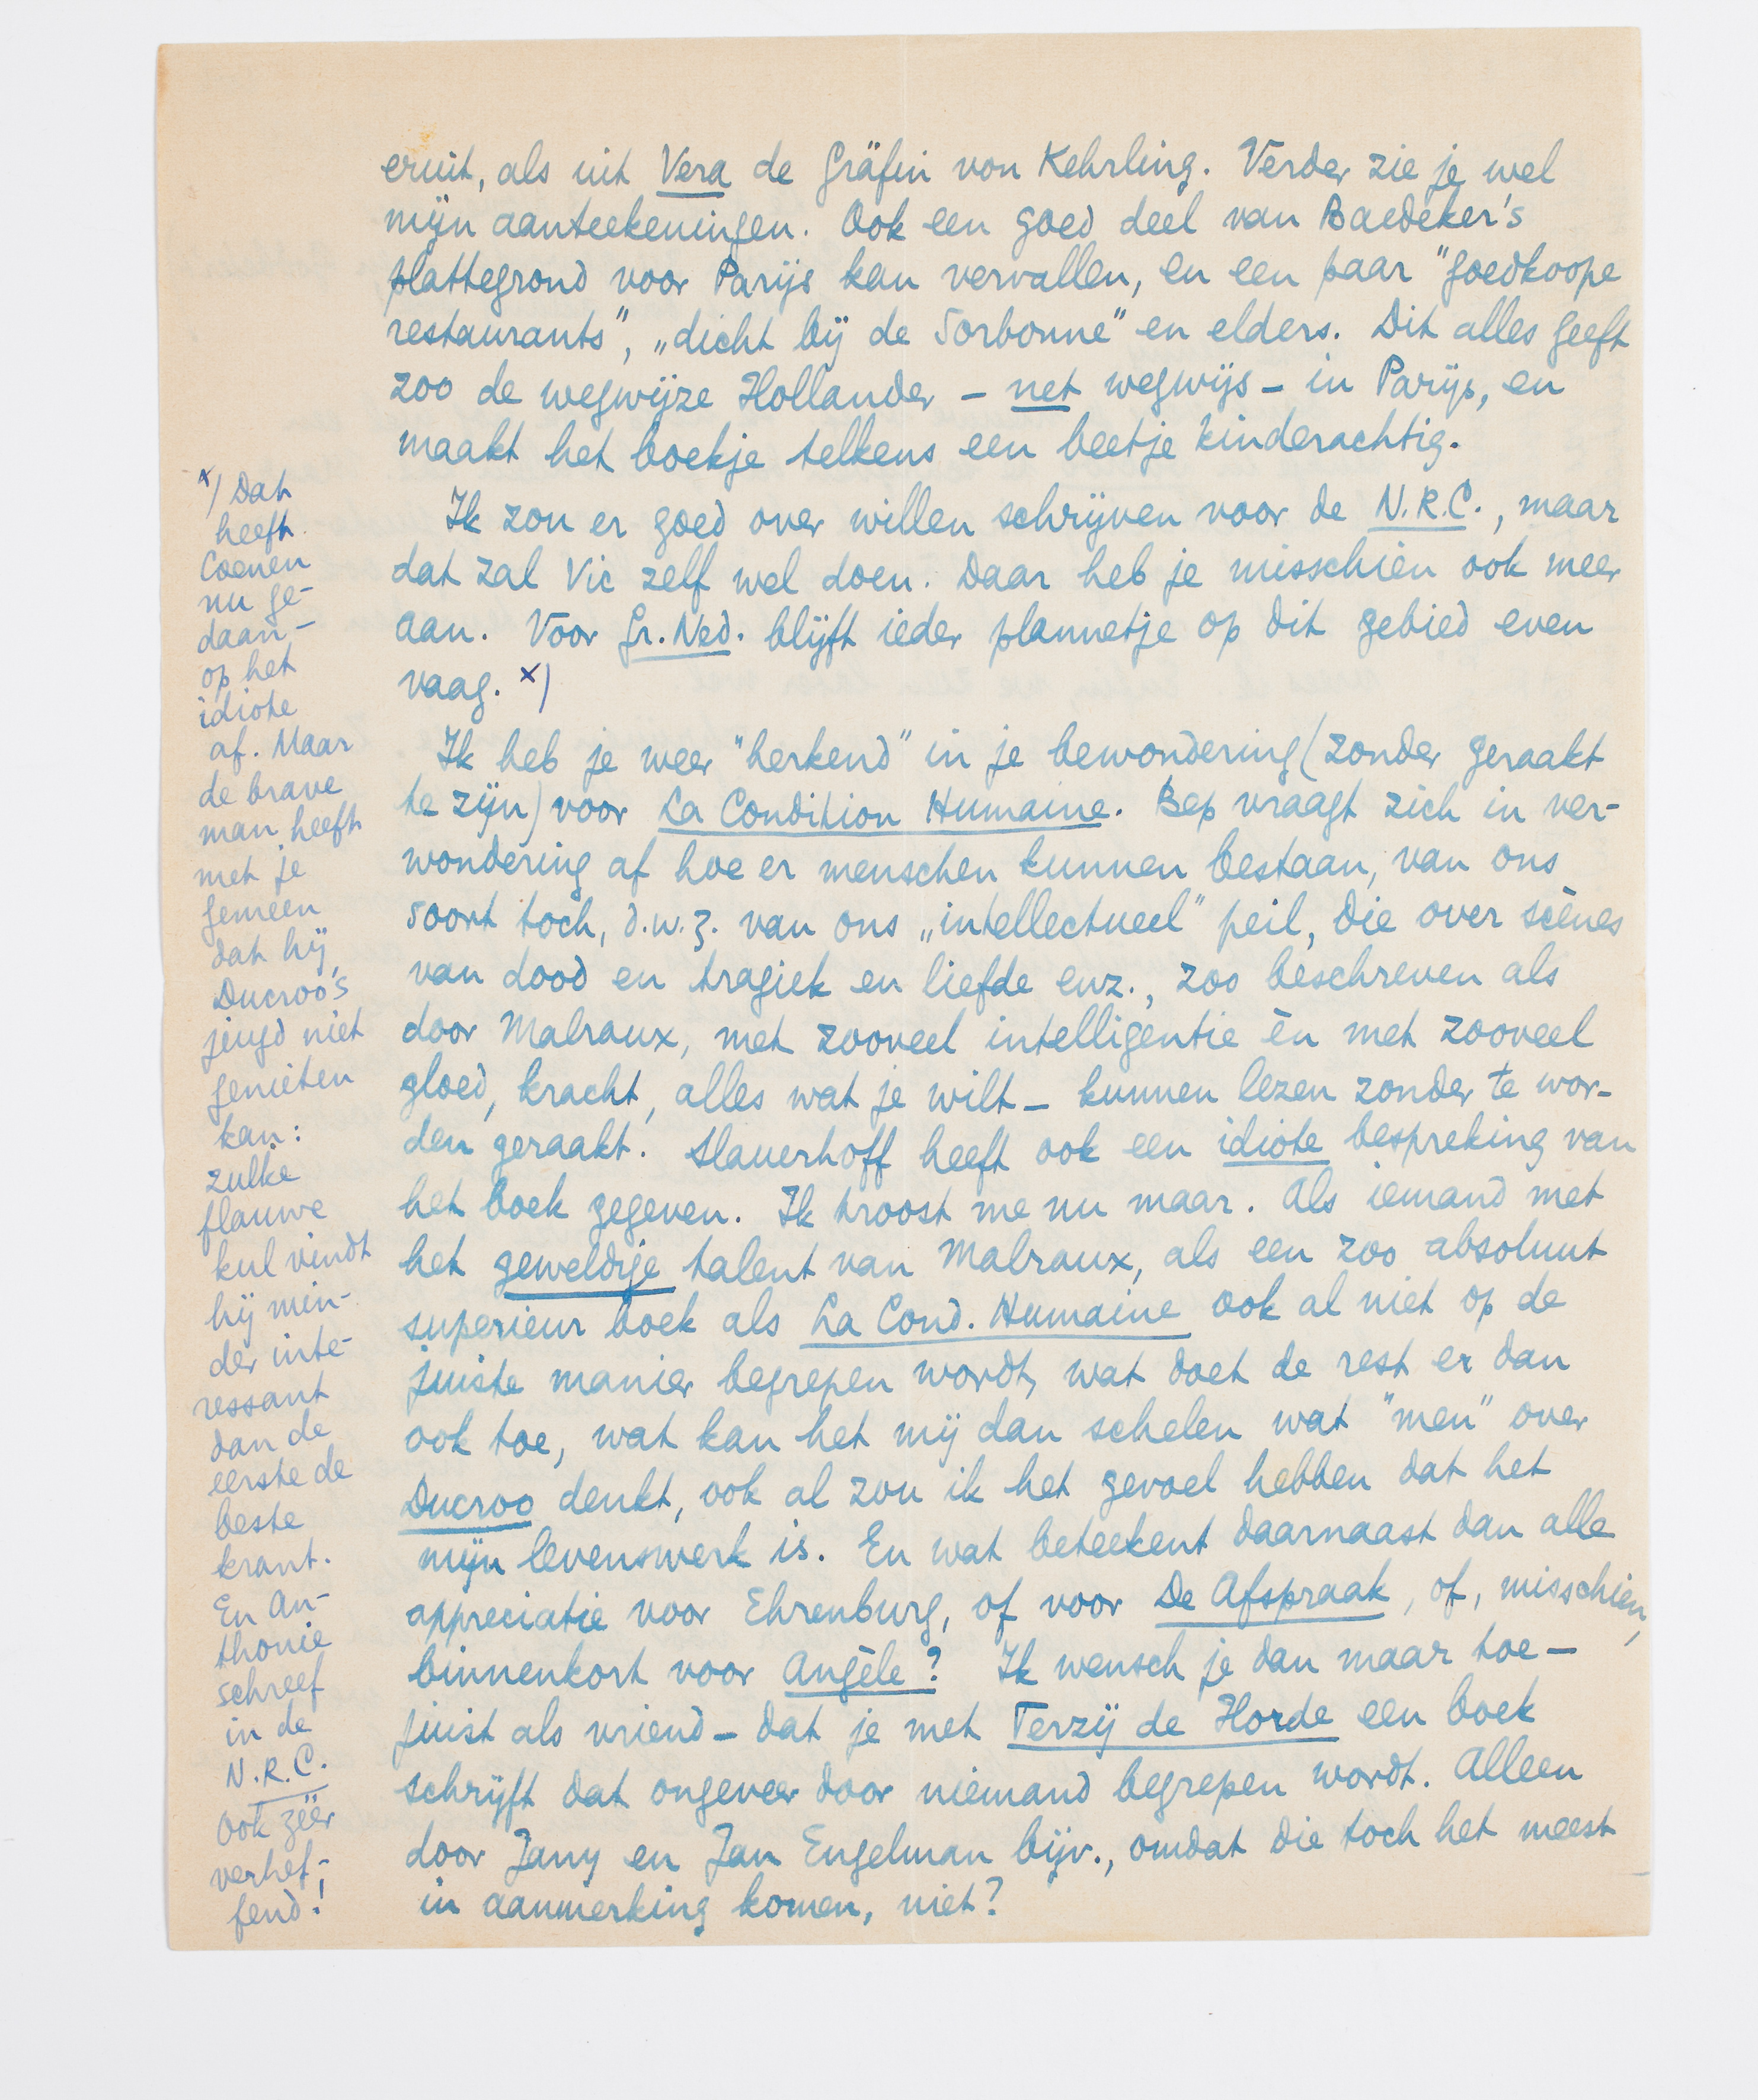 eruit, als uit Vera de Gräfin von Kehrling. Verder zie je wel
mijn aanteekeningen. Ook een goed deel van Baedeker's
plattegrond voor Parijs kan vervallen, en een paar "goedkoope
restaurants", „dicht bij de Sorbonne" en elders. Dit alles geeft
zoo de wegwijze Hollander – net wegwijs – in Parijs, en
maakt het boekje telkens een beetje kinderachtig.
Ik zou er goed over willen schrijven voor de N.R.C., maar
dat zal Vic zelf wel doen. Daar heb je misschien ook meer
aan. Voor Gr. Ned. blijft ieder plannetje op dit gebied even
vaag. x)
Ik heb je weer "herkend" in je bewondering (zonder geraakt
te zijn) voor La Condition Humaine. Bep vraagt zich in ver-
wondering af hoe er menschen kunnen bestaan, van ons
soort toch, d.w.z. van ons „intellectueel" peil, die over scènes
van dood en tragiek en liefde enz., zoo beschreven als
door Malraux, met zooveel intelligentie èn met zooveel
gloed, kracht, alles wat je wilt – kunnen lezen zonder te wor-
den geraakt. Slauerhoff heeft ook een idiote bespreking van
het boek gegeven. Ik troost me nu maar. Als iemand met
het geweldige talent van Malraux, als een zoo absoluut
superieur boek als La Cond. Humaine ook al niet op de
juiste manier begrepen wordt, wat doet de rest er dan
ook toe, wat kan het mij dan schelen wat "men" over
Ducroo denkt, ook al zou ik het gevoel hebben dat het
mijn levenswerk is. En wat beteekent daarnaast dan alle
appreciatie voor Ehrenburg, of voor De Afspraak, of, misschien,
binnenkort voor Angèle? Ik wensch je dan maar toe –
juist als vriend – dat je met Terzij de Horde een boek
schrijft dat ongeveer door niemand begrepen wordt. Alleen
door Jany en Jan Engelman bijv., omdat die toch het meest
in aanmerking komen, niet?
x) Dat
heeft
Coenen
nu ge-
daan –
op het
idiote
af. Maar
de brave
man heeft
met je
gemeen
dat hij
Ducroo's
jeugd niet
genieten
kan:
zulke
flauwe
kul vindt
hij min-
der inte-
ressant
dan de
eerste de
beste
krant.
En An-
thonie
schreef
in de
N.R.C.
ook zéér
verhef-
fend!